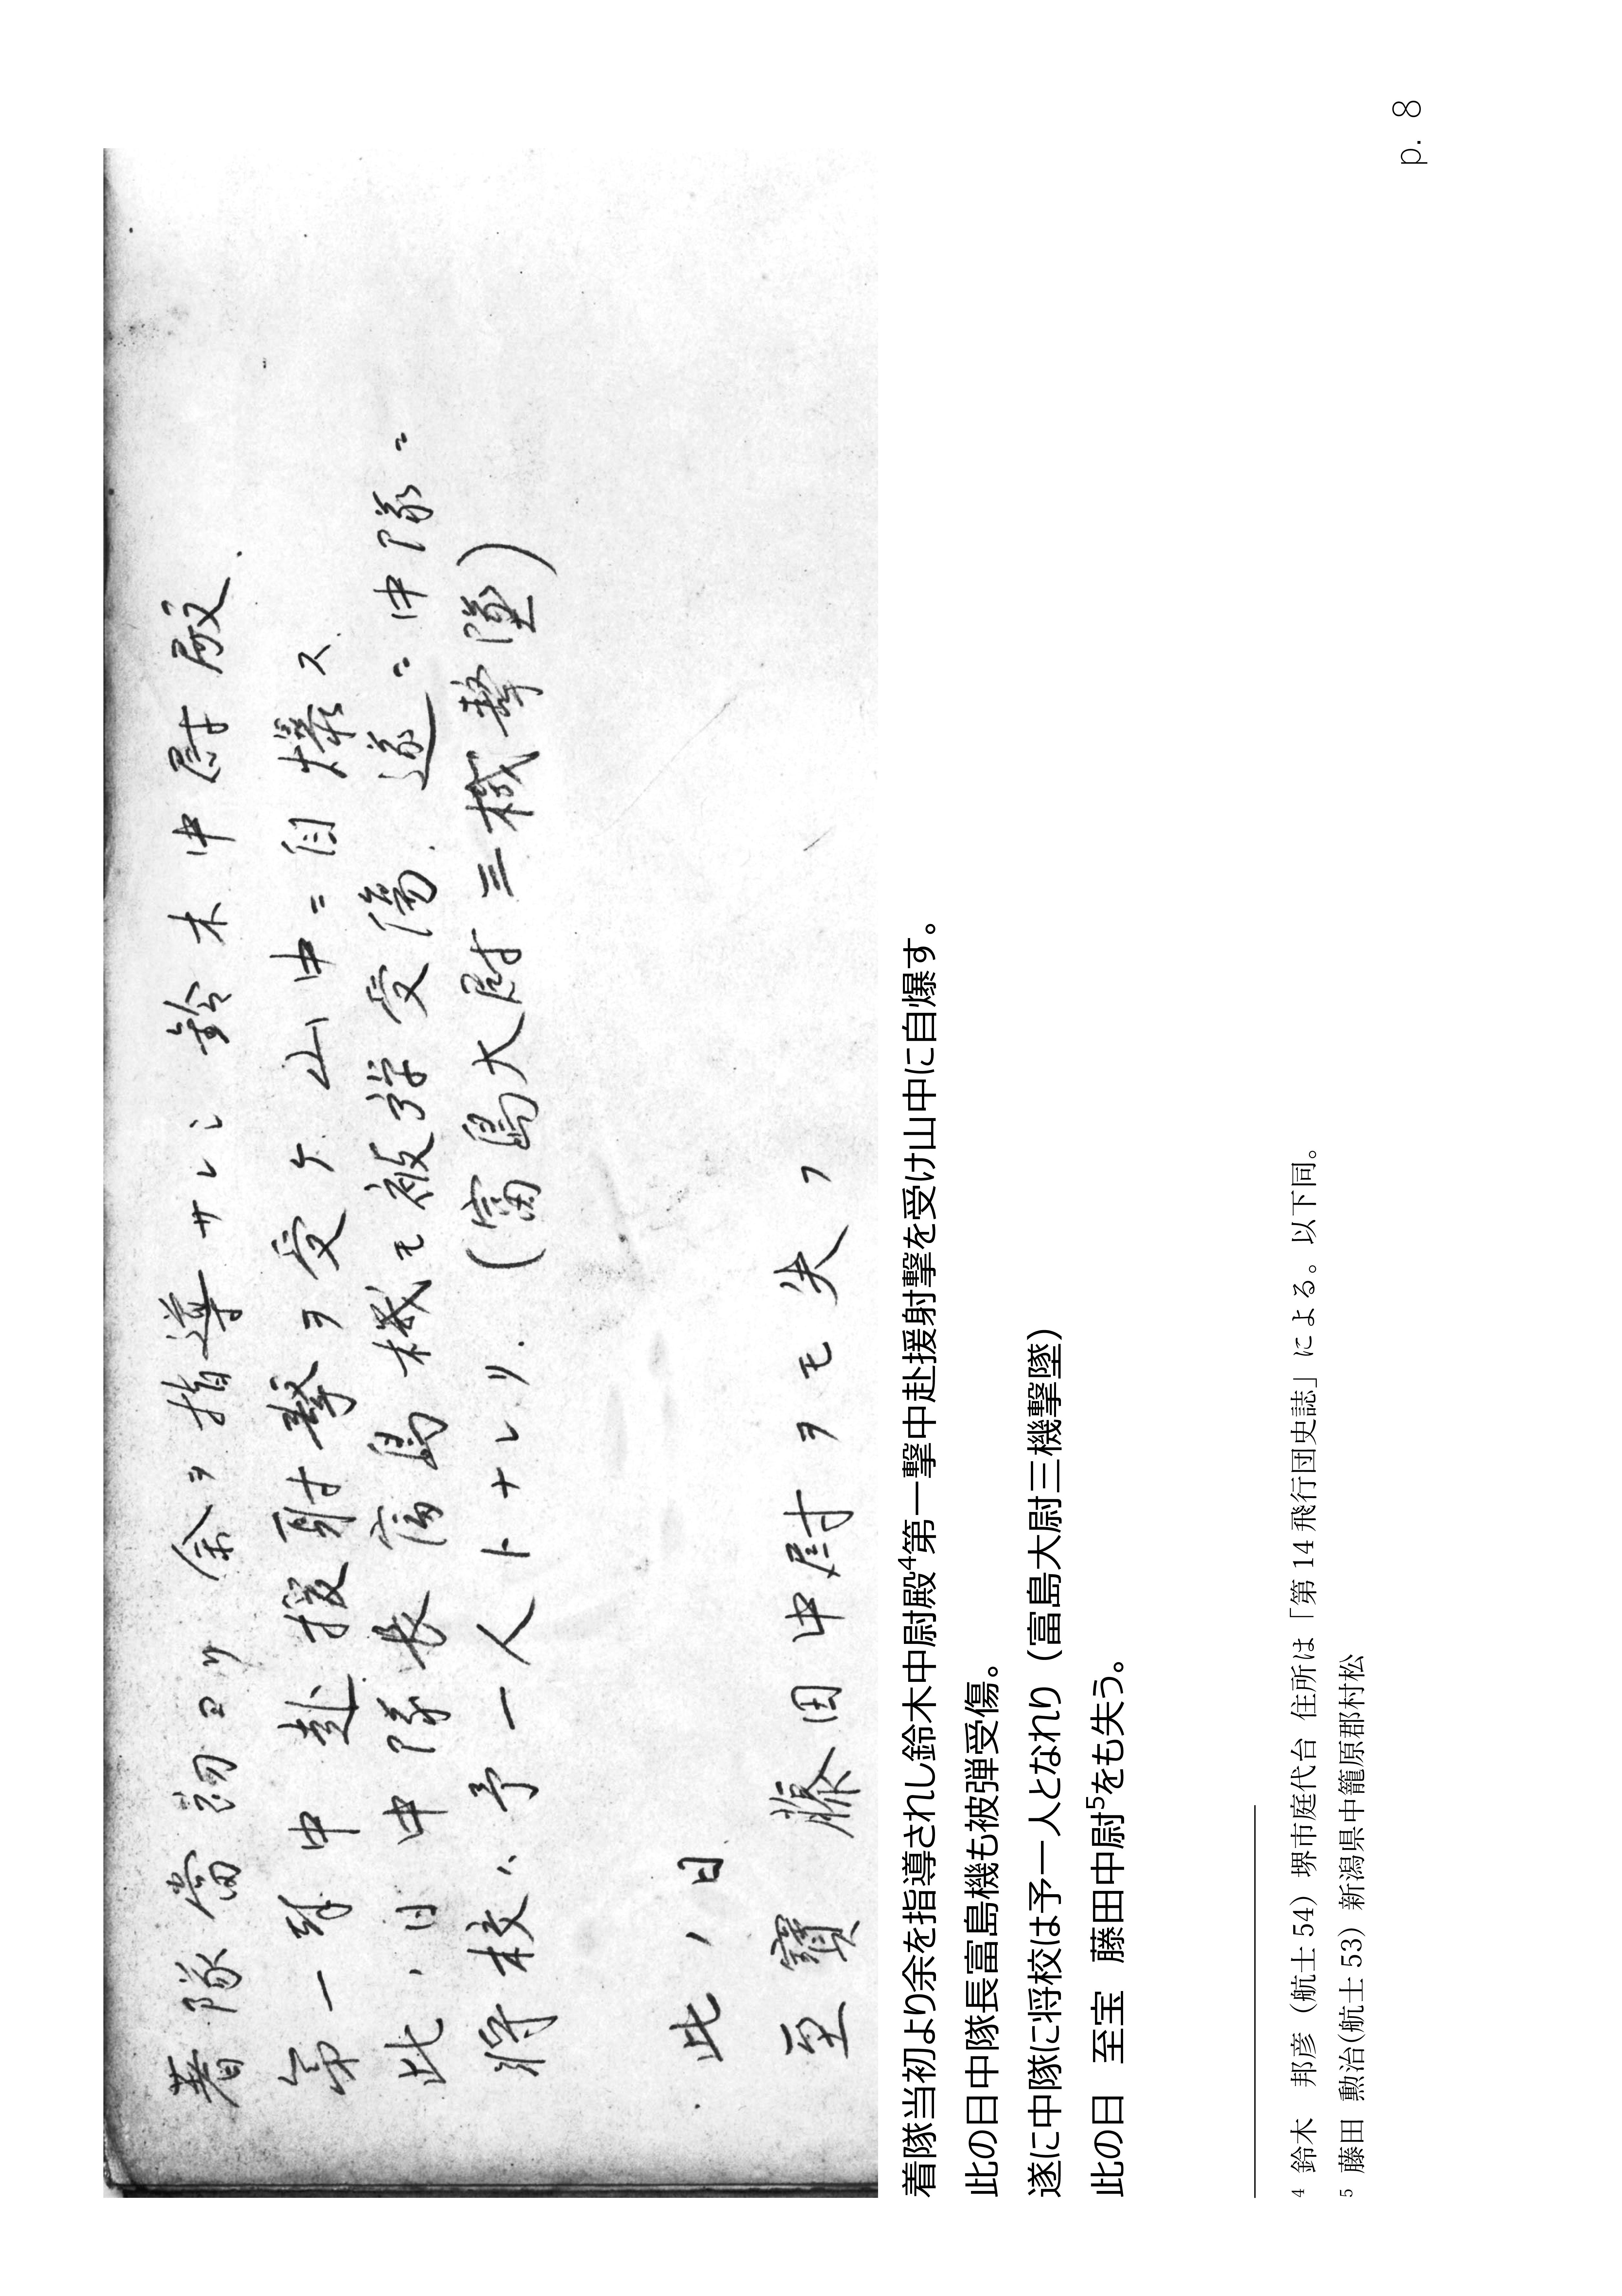 著隊當初ヨリ余ヲ指導サレシ鈴木中尉殿.
第一撃中赴援射撃ヲ受ケ山中ニ自爆ス.
此ノ日中隊長富島機モ被弾受傷.遂ニ中隊ニ
将校ハ予一人トナレリ.(富島大尉三機撃墜)
此ノ日
至寶 藤田中尉ヲモ失フ
着隊当初より余を指導されし鈴木中尉殿4第一撃中赴援射撃を受け山中に自爆す。
此の日中隊長富島機も被弾受傷。
遂に中隊に将校は予一人となれり（富島大尉三機撃墜）
此の日 至宝 藤田中尉5をも失う。
4 鈴木 邦彦（航士54）堺市庭代台 住所は「第14飛行団史誌」による。以下同。
5 藤田 勲治(航士53）新潟県中籠原郡村松
p. 8